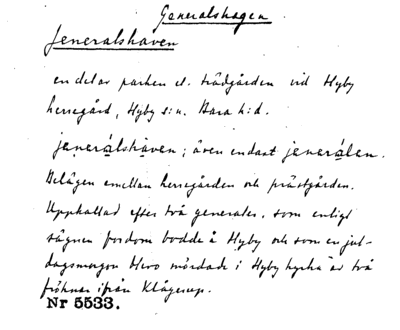 Generalshagen
Jeneralshaven
en del av parken el. trädgården vid Hyby
herregård, Hyby s:n. Bara h:d.
jenerálsháven; även endast jenerálen.
Belägen emellan herregården och prästgården.
Uppkallad efter två generaler, som enligt
sägnen fordom bodde å Hyby och som en jul-
dagsmorgon blevo mördade i Hyby kyrka av två
fröknar ifrån Klågerup.
Nr 5533.